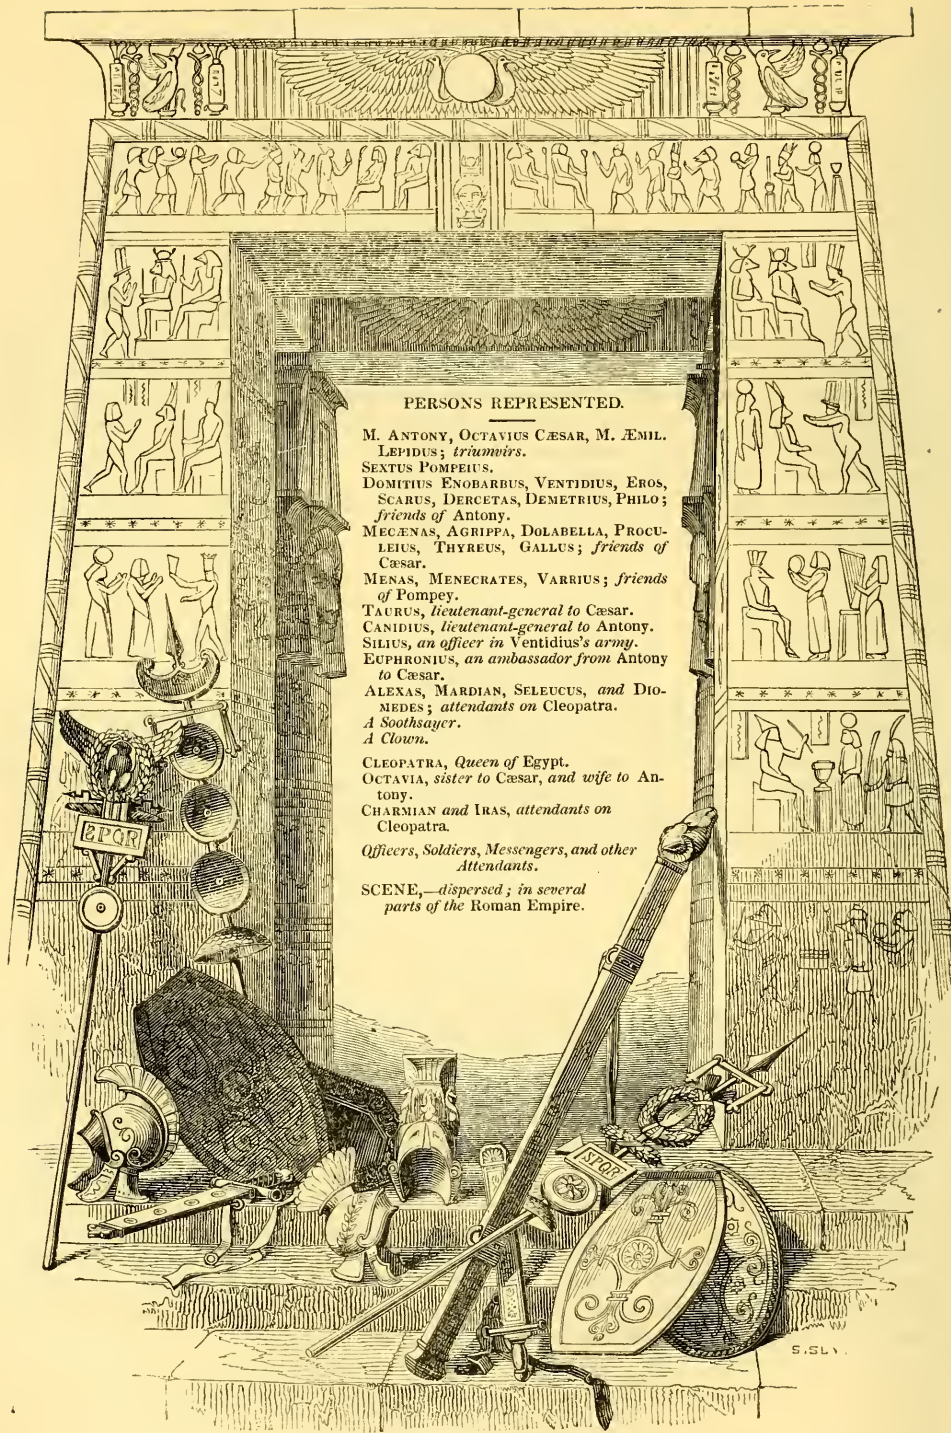 PERSONS REPRESENTED.
M. ANTONY, OCTAVIUS CÆSAR, M. ÆMIL.
LEPIDUS; triumvirs.
SEXTUS POMPEIUS.
DOMITIUS ENOBARBUS, VENTIDIUS, EROS,
SCARUS, DERCETAS, DEMETRIUS, PHILO;
friends of Antony.
MECÆNAS, AGRIPPA, DOLABELLA, PROCU-
LEIUS, THYREUS, GALLUS; friends of
Cæsar.
MENAS, MENECRATES, VARRIUS; friends
of Pompey.
TAURUS, lieutenant-general to Cæsar.
CANIDIUS, lieutenant-general to Antony.
SILIUS, an officer in Ventidius's army.
EUPHRONIUS, an ambassador from Antony
to Cæsar.
ALEXAS, MARDIAN, SELEUCUS, and DIO-
MEDES; attendants on Cleopatra.
A Soothsayer.
A Clown.
CLEOPATRA, Queen of Egypt.
OCTAVIA, sister to Cæsar, and wife to An-
tony.
CHARMIAN and IRAS, attendants on
Cleopatra.
Officers, Soldiers, Messengers, and other
Attendants.
SCENE,—dispersed; in several
parts of the Roman Empire.
SPQR
SPQR
S.SLY.